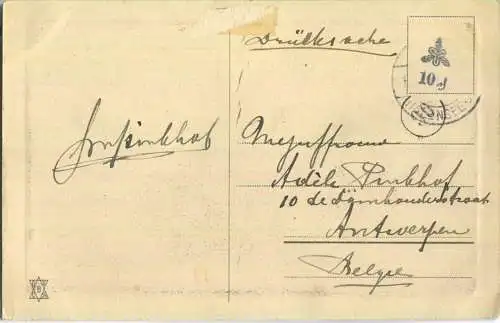 Drucksache
10 d
Mejuffrouw
Adèle Pinkhof
10 de Damhouderstraat
Antwerpen
Belgie
Pinkhof